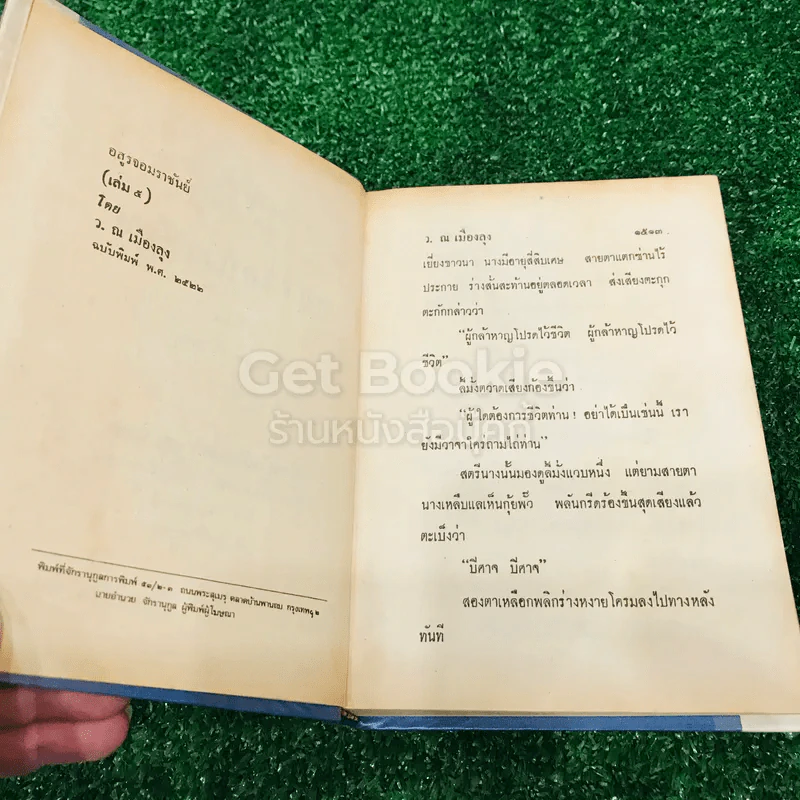 อสูรจอมราชันย์
(เล่ม ๕)
โดย
ว. ณ เมืองลุง
ฉบับพิมพ์ พ.ศ. ๒๕๒๒
พิมพ์ที่จักรานุกูลการพิมพ์ ๕๑/๒-๓ ถนนพระสุเมรุ ตลาดบ้านพานถม กรุงเทพฯ ๒
นายอำนวย จักรานุกูล ผู้พิมพ์ผู้โฆษณา
ว. ณ เมืองลุง ๑๕๑๓
เยี่ยงชาวนา นางมีอายุสี่สิบเศษ สายตาแตกซ่านไร้
ประกาย ร่างสั่นสะท้านอยู่ตลอดเวลา ส่งเสียงตะกุก
ตะกักกล่าวว่า
“ผู้กล้าหาญโปรดไว้ชีวิต ผู้กล้าหาญโปรดไว้
ชีวิต”
ลี้มั่งตวาดเสียงก้องขึ้นว่า
“ผู้ใดต้องการชีวิตท่าน ! อย่าได้เป็นเช่นนี้ เรา
ยังมีวาจาใคร่ถามไถ่ท่าน”
สตรีนางนั้นมองดูลี้มั่งแวบหนึ่ง แต่ยามสายตา
นางเหลือบแลเห็นกุ้ยพั้ว พลันกรีดร้องขึ้นสุดเสียงแล้ว
ตะเบ็งว่า
“ปีศาจ ปีศาจ”
สองตาเหลือกพลิกร่างหงายโครมลงไปทางหลัง
ทันที
Get Bookie
ร้านหนังสือบุ๊คกี้